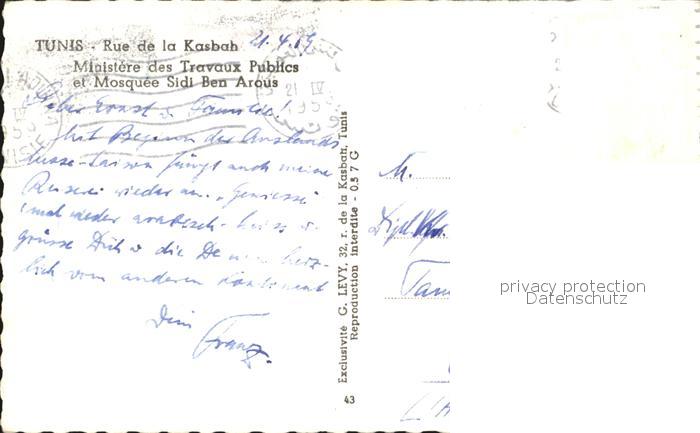 TUNIS - Rue de la Kasbah 21.4.59
Ministère des Travaux Publics
et Mosquée Sidi Ben Arous
Lieber Ernst u. Familie!
Mit Beginn der Auslands
busse-Saison fängt auch meine
Reiserei wieder an. Geniesse
mal wieder arabisch-
grüsse Dich u die Deinen herz-
lich vom anderen Kontinent
Dein
Franz.
Exclusivité G. LEVY, 32, r. de la Kasbah, Tunis
Reproduction interdite - 057 G
43
M.
Fam
privacy protection
Datenschutz